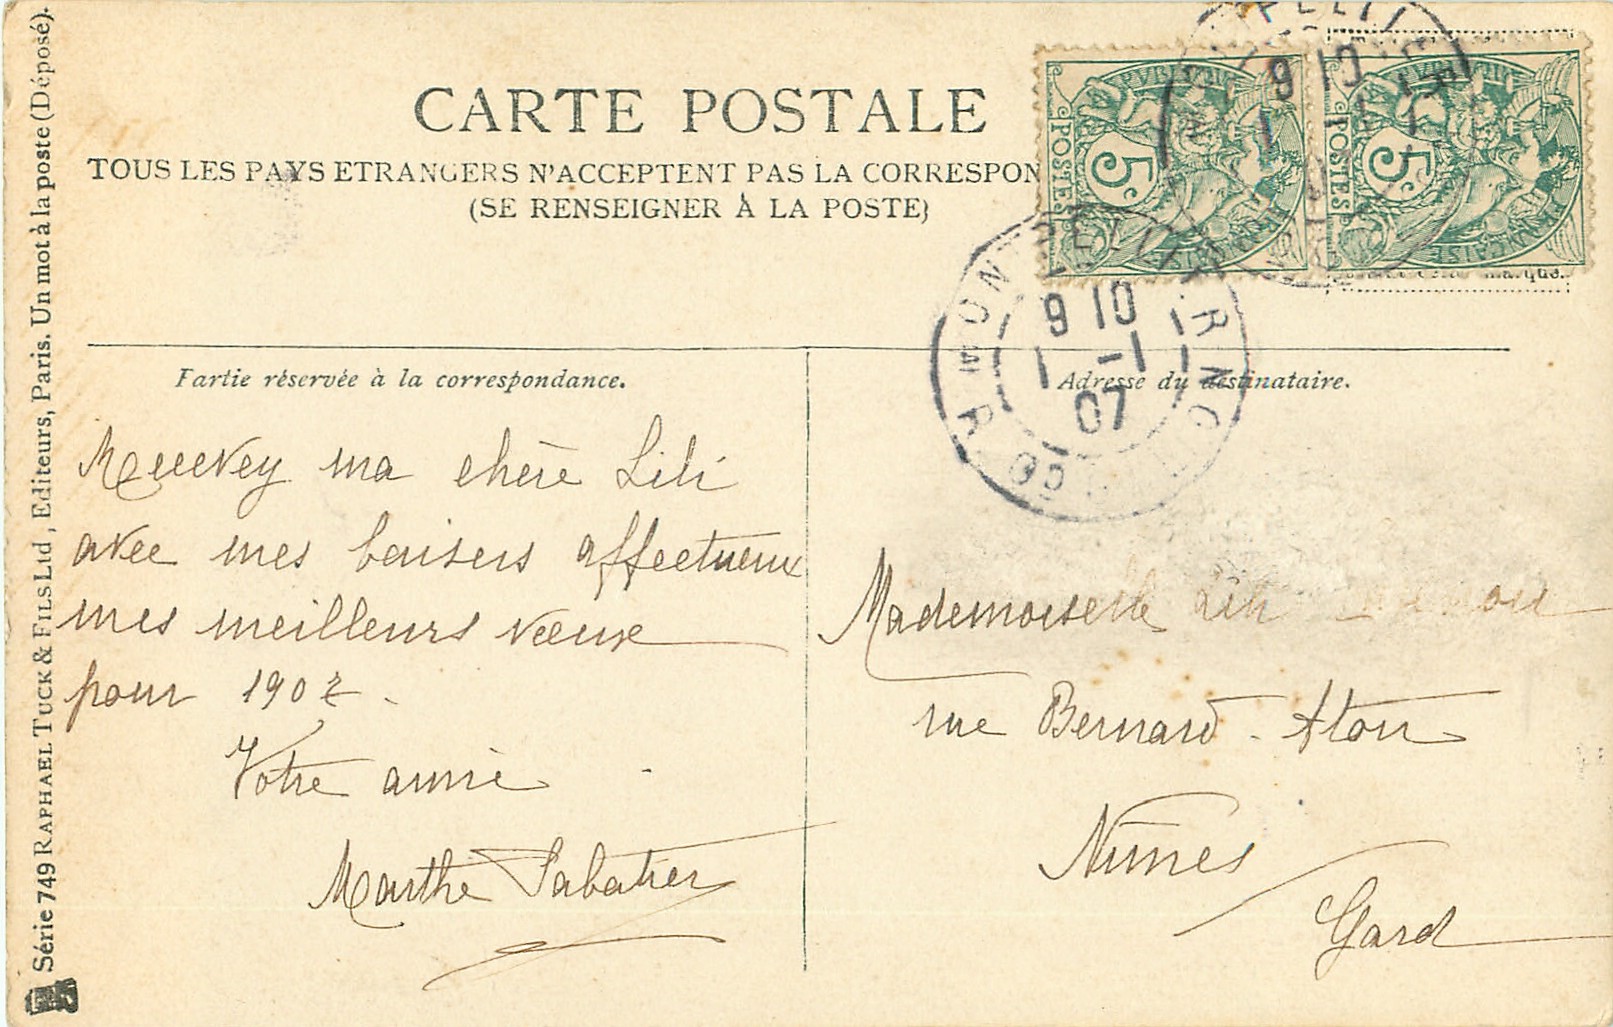 CARTE POSTALE
TOUS LES PAYS ETRANGERS N'ACCEPTENT PAS LA CORRESPON
(SE RENSEIGNER À LA POSTE)
POSTES 5c
POSTES 5c
9 10
1 -1
07
Partie réservée à la correspondance.
Recevez ma chère Lili
avec mes baisers affectueux
mes meilleurs vœux
pour 1907.
Votre amie
Marthe Sabatier
Adresse du destinataire.
Mademoiselle Lili
rue Bernard-Aton
Nîmes
Gard
Série 749 RAPHAEL TUCK & FILS Ltd, Editeurs, Paris. Un mot à la poste (Déposé).